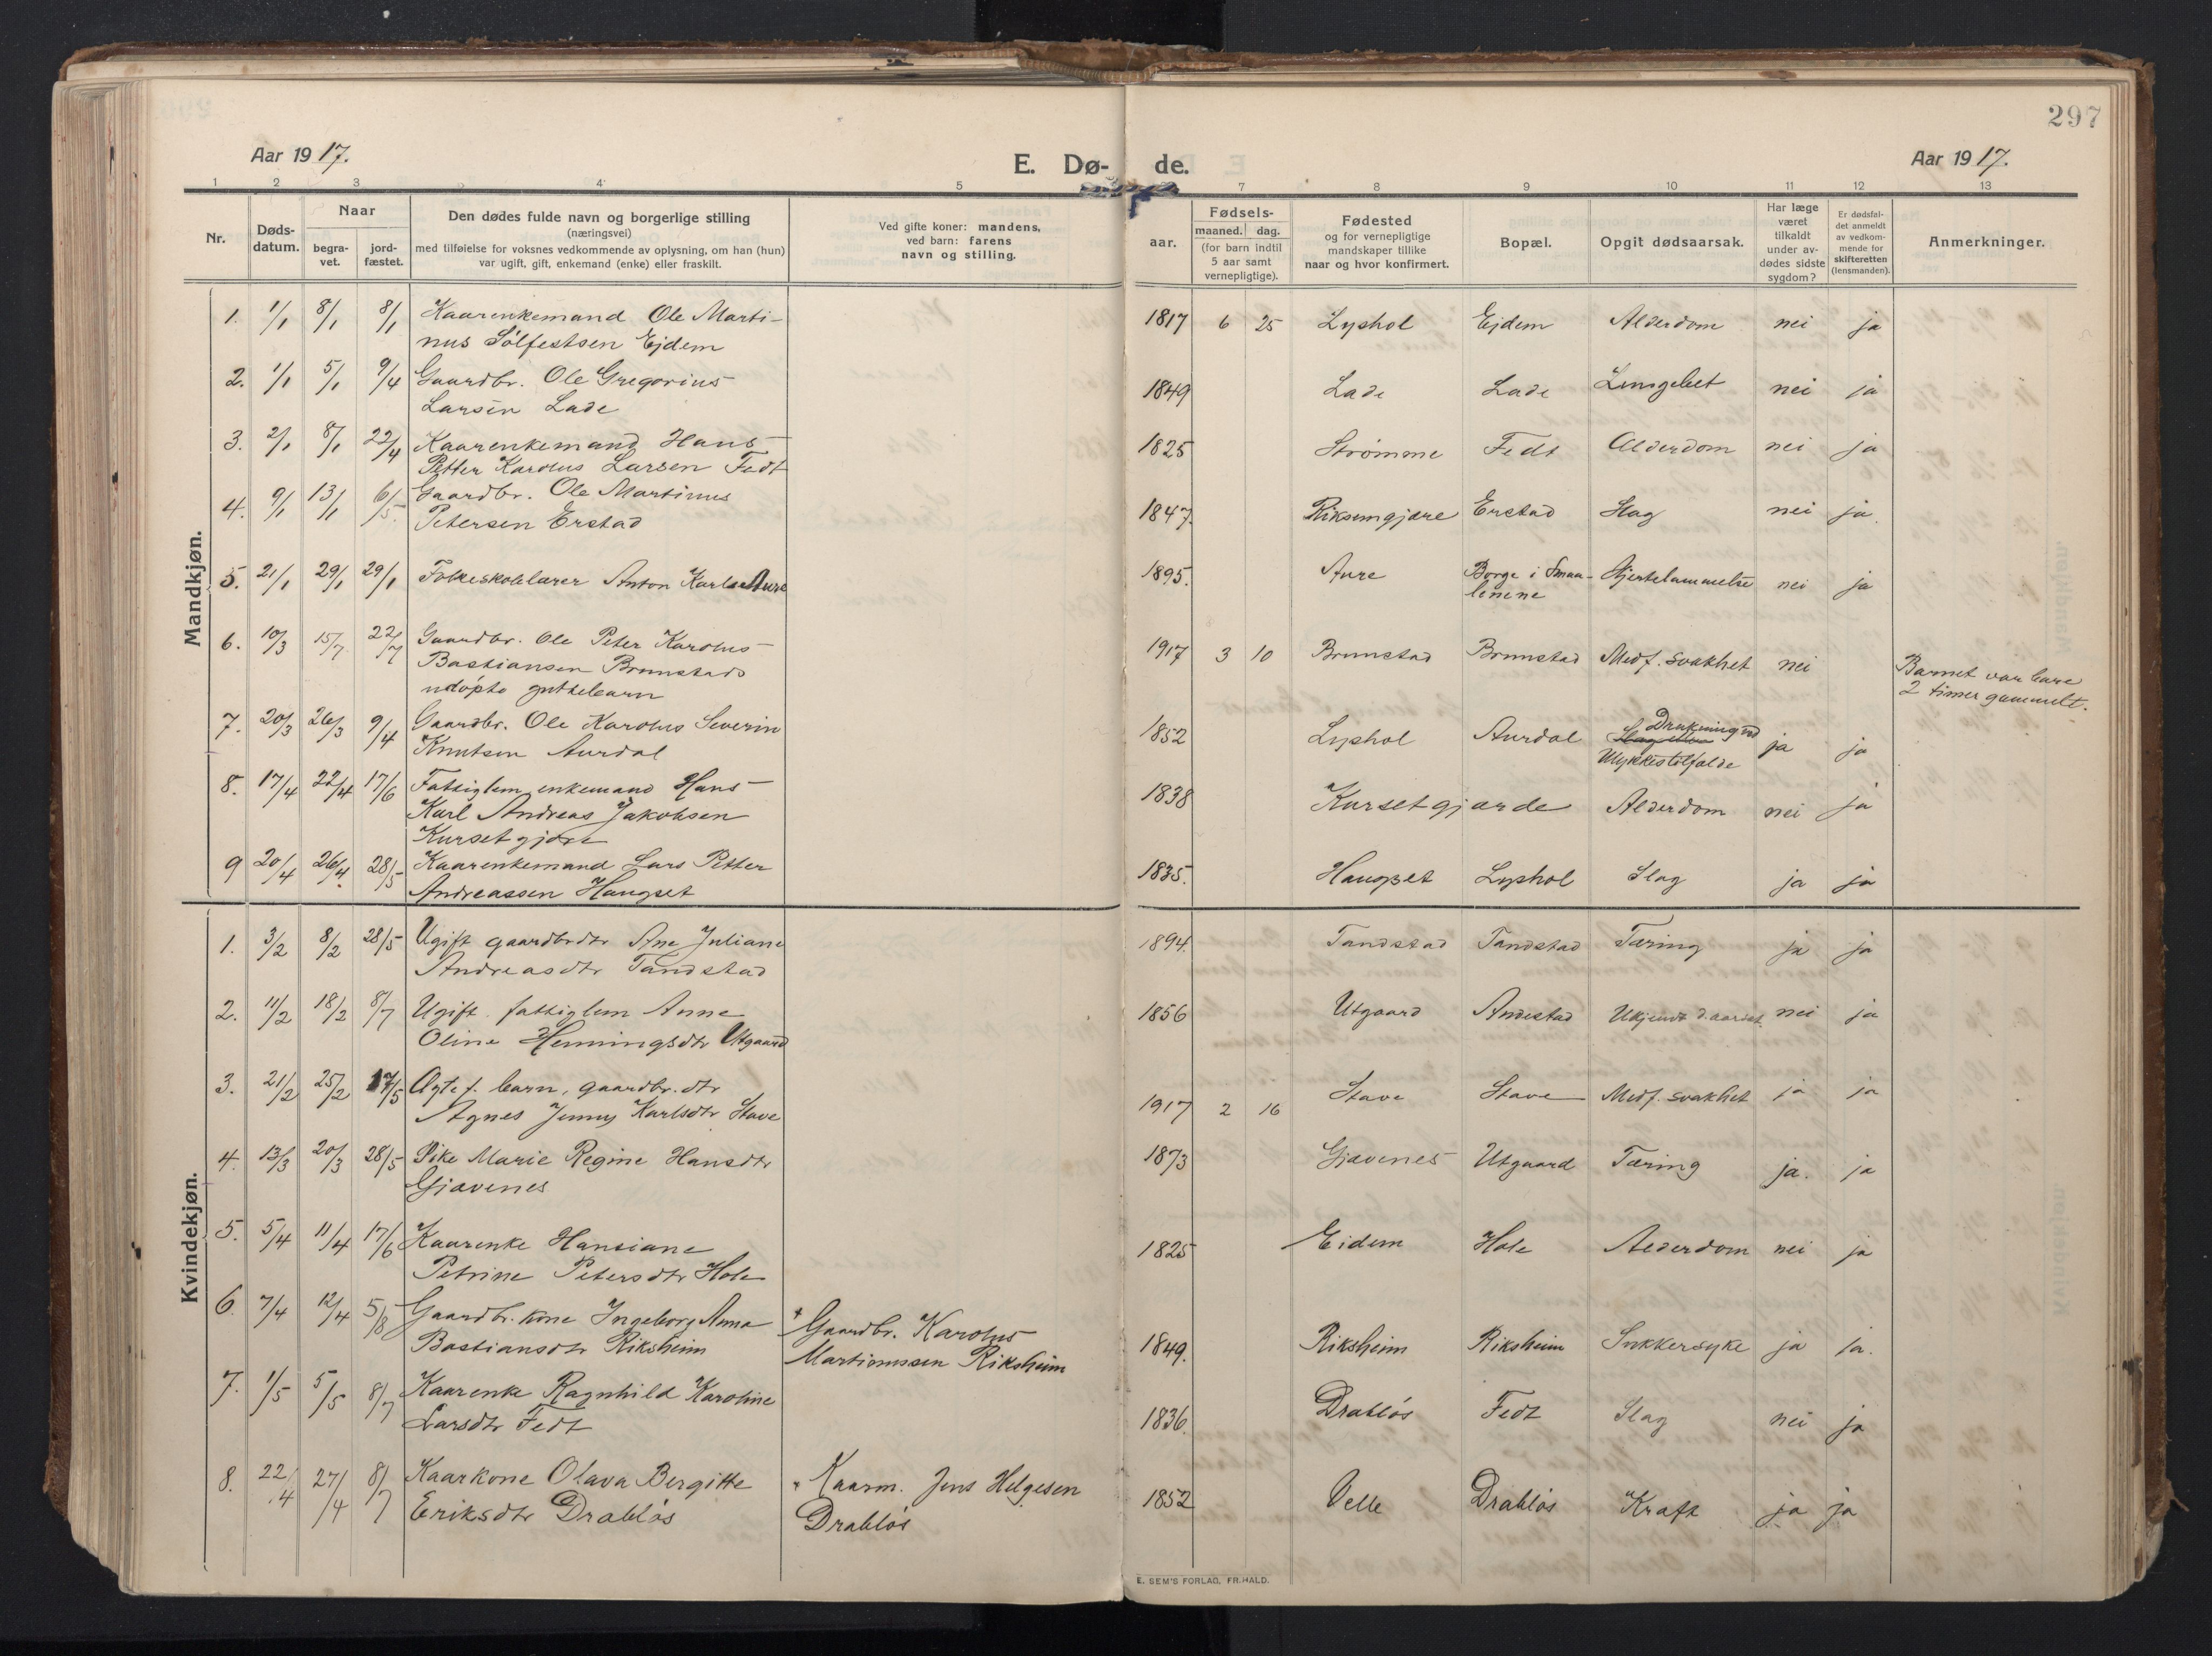 297
Aar 1917.
E. Dø-de.
Aar 1917.
1 2 3 4 5 7 8 9 10 11 12 13
Nr.
Døds-datum.
Naar
begra-vet.
jord-fæstet.
Den dødes fulde navn og borgerlige stilling
(næringsvei)
med tilføielse for voksnes vedkommende av oplysning, om han (hun)
var ugift, gift, enkemand (enke) eller fraskilt.
Ved gifte koner: mandens,
ved barn: farens
navn og stilling.
Fødsels-
aar.
maaned. dag.
(for barn indtil
5 aar samt
vernepligtige).
Fødested
og for vernepligtige
mandskaper tillike
naar og hvor konfirmert.
Bopæl.
Opgit dødsaarsak.
Har læge
været
tilkaldt
under av-
dødes sidste
sygdom?
Er dødsfal-
det anmeldt
av vedkom-
mende for
skifteretten
(lensmanden).
Anmerkninger.
Mandkjøn.
1. 1/1 8/1 8/1 Kaarenkemand Ole Marti- 1817 6 25 Lyshol Ejdem Alderdom nei ja
nus Sølfestsen Ejdem
2. 1/1 5/1 9/4 Gaardbr. Ole Gregorius 1849 Lade Lade nei ja
Larsen Lade
3. 2/1 8/1 22/4 Kaarenkemand Hans 1825 Strømme Fedt Alderdom nei ja
Petter Karolus Larsen Fedt
4. 9/1 13/1 6/5. Gaardbr. Ole Martinus 1847. Erstad Slag nei ja.
Petersen Erstad
5. 21/1 29/1 29/1 Folkeskolelærer Anton Karlsen Aure 1895. Aure Borge i Smaa- Hjertelammelse nei ja
lenene
6. 10/3 15/7 22/7 Gaardbr. Ole Peter Karolus 1917 3 10 Brunstad Brunstad Medf. svakhet nei Barnet var bare
Bastiansen Brunstads 2 timer gammelt.
udøpte guttebarn
7. 20/3 26/3 9/4 Gaardbr. Ole Karolus Severin 1852 Lyshol Aurdal Drukning ved ja ja
Knutsen Aurdal Ulykkestilfælde
8. 17/4 22/4 17/6 Fattiglem enkemand Hans 1838 Kursetgjærde Alderdom nei ja
Karl Andreas Jakobsen
Kursetgjære
9 20/4 26/4. 28/5 Kaarenkemand Lars Petter 1835. Haugset Lyshol Slag ja ja
Andreassen Haugset
Kvindekjøn.
1. 3/2 8/2 28/5 Ugift gaardbrdtr Ane Juliane 1894. Tandstad Tandstad Tæring ja ja
Andreasdtr Tandstad
2. 11/2 18/2 8/7 Ugift fattiglem Anne 1856 Utgaard Andestad Ukjendt d.aarsak. nei ja
Oline Henningsdtr Utgaard
3. 21/2 25/2 17/5 Ægtef. barn, gaardbr. dtr 1917 2 16 Stave Stave Medf. svakhet ja ja
Agnes Jenny Karlsdtr Stave
4. 13/3 20/3 28/5 Pike Marie Regine Hansdtr 1873 Gjævenes Utgaard Tæring ja. ja
Gjævenes
5. 5/4 11/4 17/6 Kaarenke Hansiane 1825 Eidem Hole Alderdom nei ja
Petrine Petersdtr Hole
6. 7/4 12/4 5/8 Gaardbr. kone Ingeborg Anna Gaardbr. Karolus 1849. Riksheim Riksheim Sukkersyke ja ja.
Bastiansdtr Riksheim Martinussen Riksheim
7. 1/5 5/5 8/7 Kaarenke Ragnhild Karoline 1836. Drabløs Fedt Slag nei ja
Larsdtr Fedt
8. 22/4 27/4 8/7 Kaarkone Olava Bergitte Kaarm. Jens Helgesen 1852 Velle Drabløs Kræft ja ja
Eriksdtr Drabløs Drabløs
E. SEM'S FORLAG, FR.HALD.